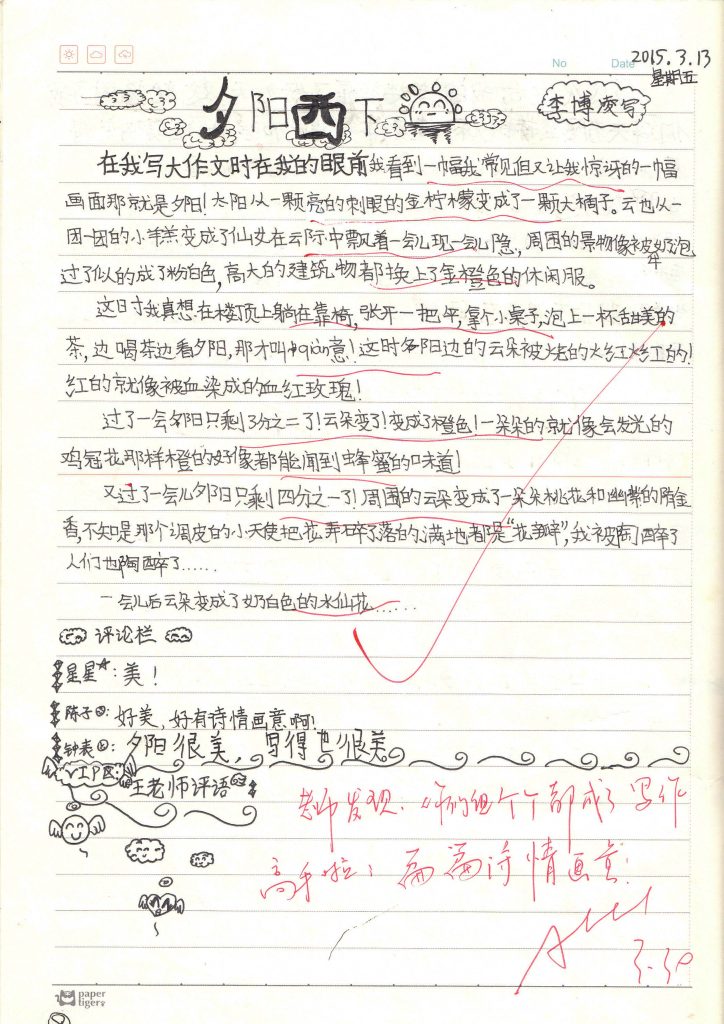 No Date 2015.3.13
星期五
夕阳西下
李博凌写
在我写大作文时在我的眼前我看到一幅我常见但又让我惊讶的一幅
画面那就是夕阳!太阳从一颗亮的刺眼的金柠檬变成了一颗大桶子。云也从一
团一团的小羊羔变成了仙女在云际中飘着一会儿现一会儿隐,周围的景物像被奶泡
牛
过了似的成了粉白色,高大的建筑物都换上了金橙色的休闲服。
这时我真想在楼顶上躺在靠椅,张开一把伞,拿个小桌子,泡上一杯甜美的
茶,边喝茶边看夕阳,那才叫qiè意!这时夕阳边的云朵被烧的火红火红的!
红的就像被血染成的血红玫瑰!
过了一会夕阳只剩3分之二了!云朵变了!变成了橙色!一朵朵的就像会发光的
鸡冠花那样橙的好像都能闻到蜂蜜的味道!
又过了一会儿夕阳只剩四分之一了!周围的云朵变成了一朵朵桃花和幽紫的
香,不知是那个调皮的小天使把花弄碎了落的满地都是“花瓣”,我被陶醉了
人们也陶醉了……
一会儿后云朵变成了奶白色的水仙花……
评论栏
星星:美!
陈子:好美,好有诗情画意啊!
钟表:夕阳很美,写得也很美
VIP区:
王老师评语
老师发现:你们组个个都成了写作
高手啦!篇篇诗情画意!
3.30
paper
tiger